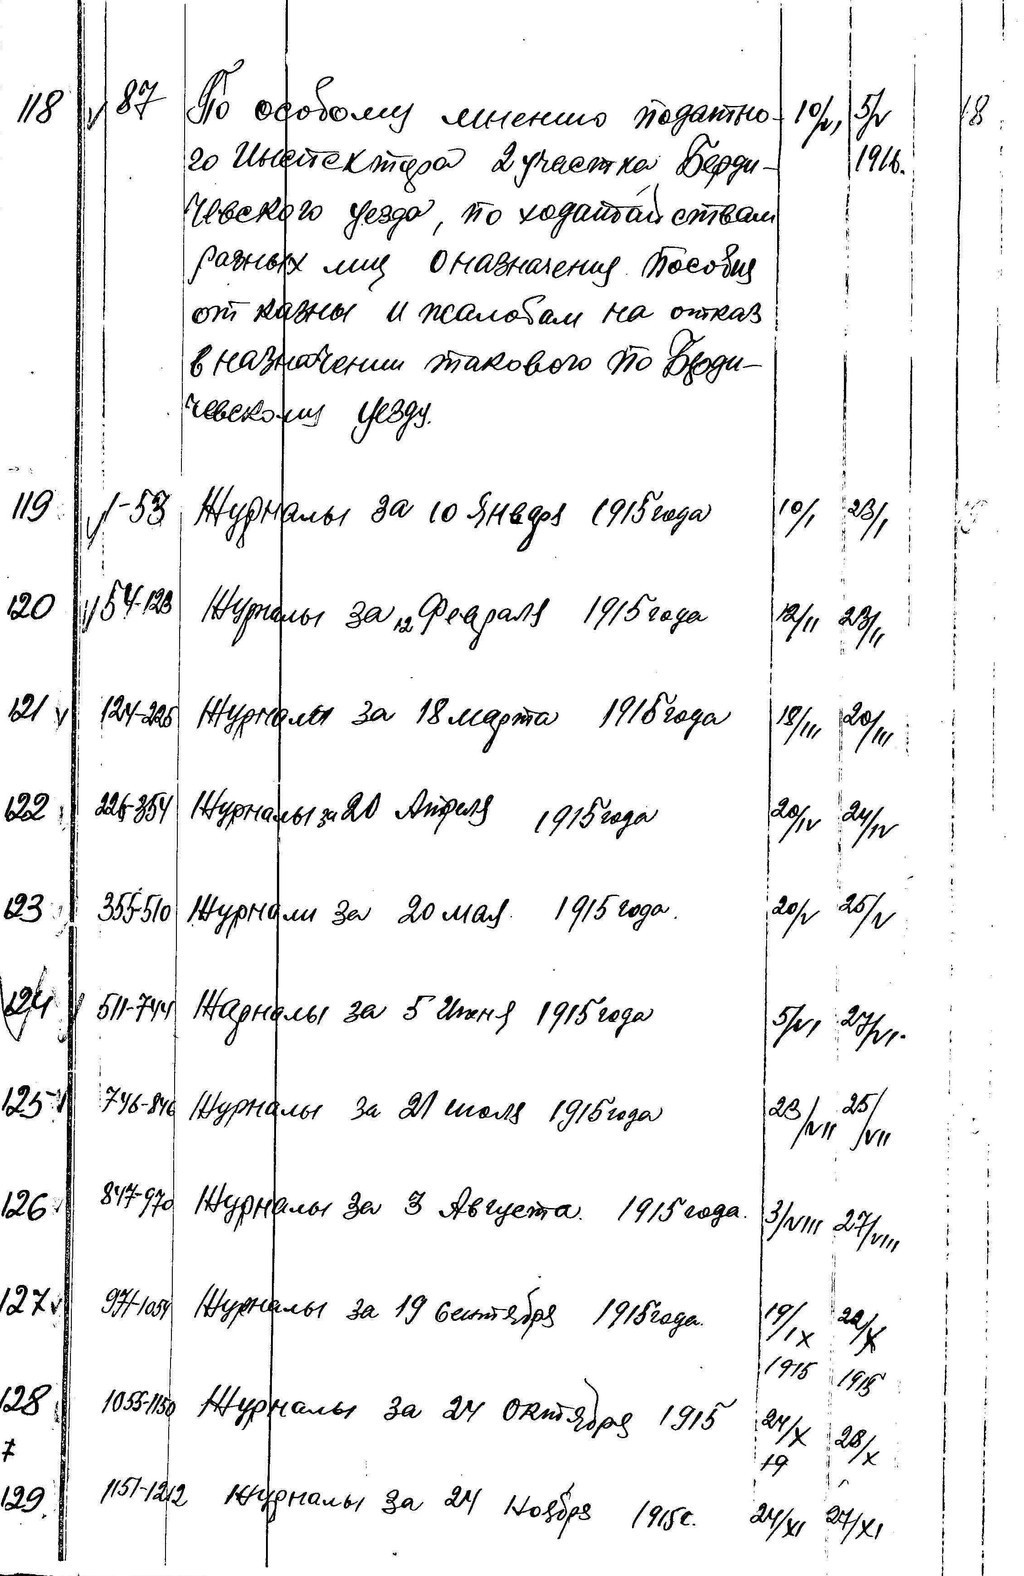 118 v 87 По особому мнению податно- 10/V, 5/V 18
го Инспектора 2 участка Берди- 1916.
чевского уезда, по ходатайствам
разных лиц о назначения пособия
от казны и жалобам на отказ
в назначении такового по Берди-
чевскому уезду.
119 v 1-53 Журналы за 10 Января 1915 года 10/I 23/I
120 v 54-123 Журналы за 12 Февраля 1915 года 12/II 23/II
121 v 124-225 Журналы за 18 марта 1915 года 18/III 20/III
122 226-354 Журналы за 20 Апреля 1915 года 20/IV 24/IV
123 355-510 Журнали за 20 мая. 1915 года. 20/V 25/V
124 511-744 Жарналы за 5 Июня 1915 года 5/VI 27/VI.
125 v 746-846 Журналы за 21 июля 1915 года 23/VII 25/VII
126 v 847-970 Журналы за 3 Августа. 1915 года. 3/VIII 27/VIII
127 v 971-1054 Журналы за 19 Сентября 1915 года. 19/IX 22/X
1915 1915
128 1055-1150 Журналы за 24 Октября 1915 24/X 28/X
19
129. 1151-1212 Журналы за 24 Ноября 1915 г. 24/XI 27/XI